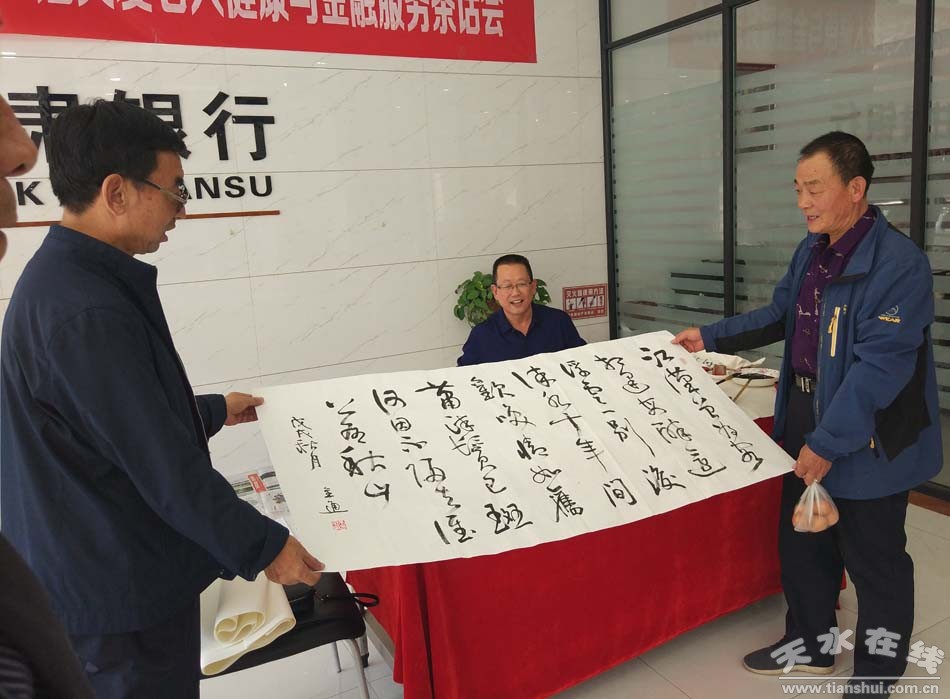 老人健康与金融服务茶话会
肃银行
ANSU
江漢曾為客
相逢每醉還
浮雲一別後
流水十年間
歡笑情如舊
蕭疏鬢已斑
何因不歸去淮
上有秋山
戊戌秋月
天水在线
www.tianshui.com.cn